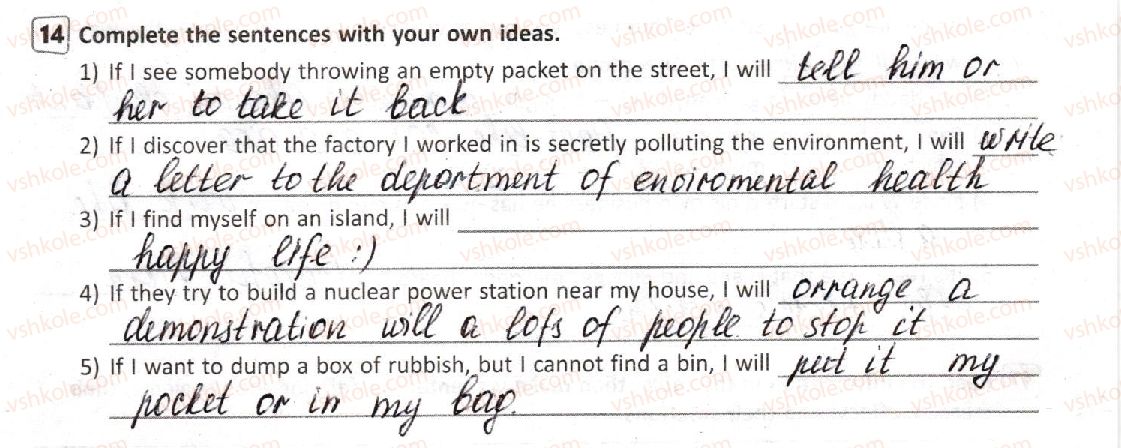 14 Complete the sentences with your own ideas.
1) If I see somebody throwing an empty packet on the street, I will tell him or
her to take it back
2) If I discover that the factory I worked in is secretly polluting the environment, I will write
a letter to the deportment of enoiromental health
3) If I find myself on an island, I will
happy life :)
4) If they try to build a nuclear power station near my house, I will orrange a
demonstration will a lots of people to stop it
5) If I want to dump a box of rubbish, but I cannot find a bin, I will put it my
pocket or in my bag.
vshkole.com